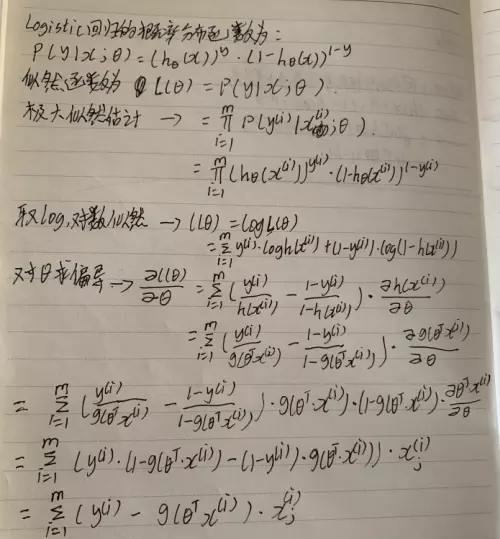 Logistic回归的概率分布函数为:
P(y|x;θ) = (hθ(x))^y · (1-hθ(x))^1-y
似然函数为 L(θ) = P(y|x;θ).
极大似然估计 → = ∏_{i=1}^{m} P(y^(i)|x^(i);θ).
= ∏_{i=1}^{m} (hθ(x^(i)))^y^(i) · (1-hθ(x^(i)))^(1-y^(i))
取log,对数似然 → l(θ) = logL(θ)
= ∑_{i=1}^{m} y^(i) · logh(x^(i)) + (1-y^(i)) · log(1-h(x^(i)))
对θ求偏导 → ∂l(θ)/∂θ = ∑_{i=1}^{m} (y^(i)/h(x^(i)) - 1-y^(i)/1-h(x^(i))) · ∂h(x^(i))/∂θ
= ∑_{i=1}^{m} (y^(i)/g(θ^T x^(i)) - 1-y^(i)/1-g(θ^T x^(i))) · ∂g(θ^T x^(i))/∂θ
= ∑_{i=1}^{m} (y^(i)/g(θ^T x^(i)) - 1-y^(i)/1-g(θ^T x^(i))) · g(θ^T · x^(i)) · (1-g(θ^T · x^(i)) · ∂θ^T x^(i)/∂θ
= ∑_{i=1}^{m} (y^(i) · (1-g(θ^T · x^(i)) - (1-y^(i)) · g(θ^T · x^(i))) · x_j^(i)
= ∑_{i=1}^{m} (y^(i) - g(θ^T x^(i)) · x_j^(i)